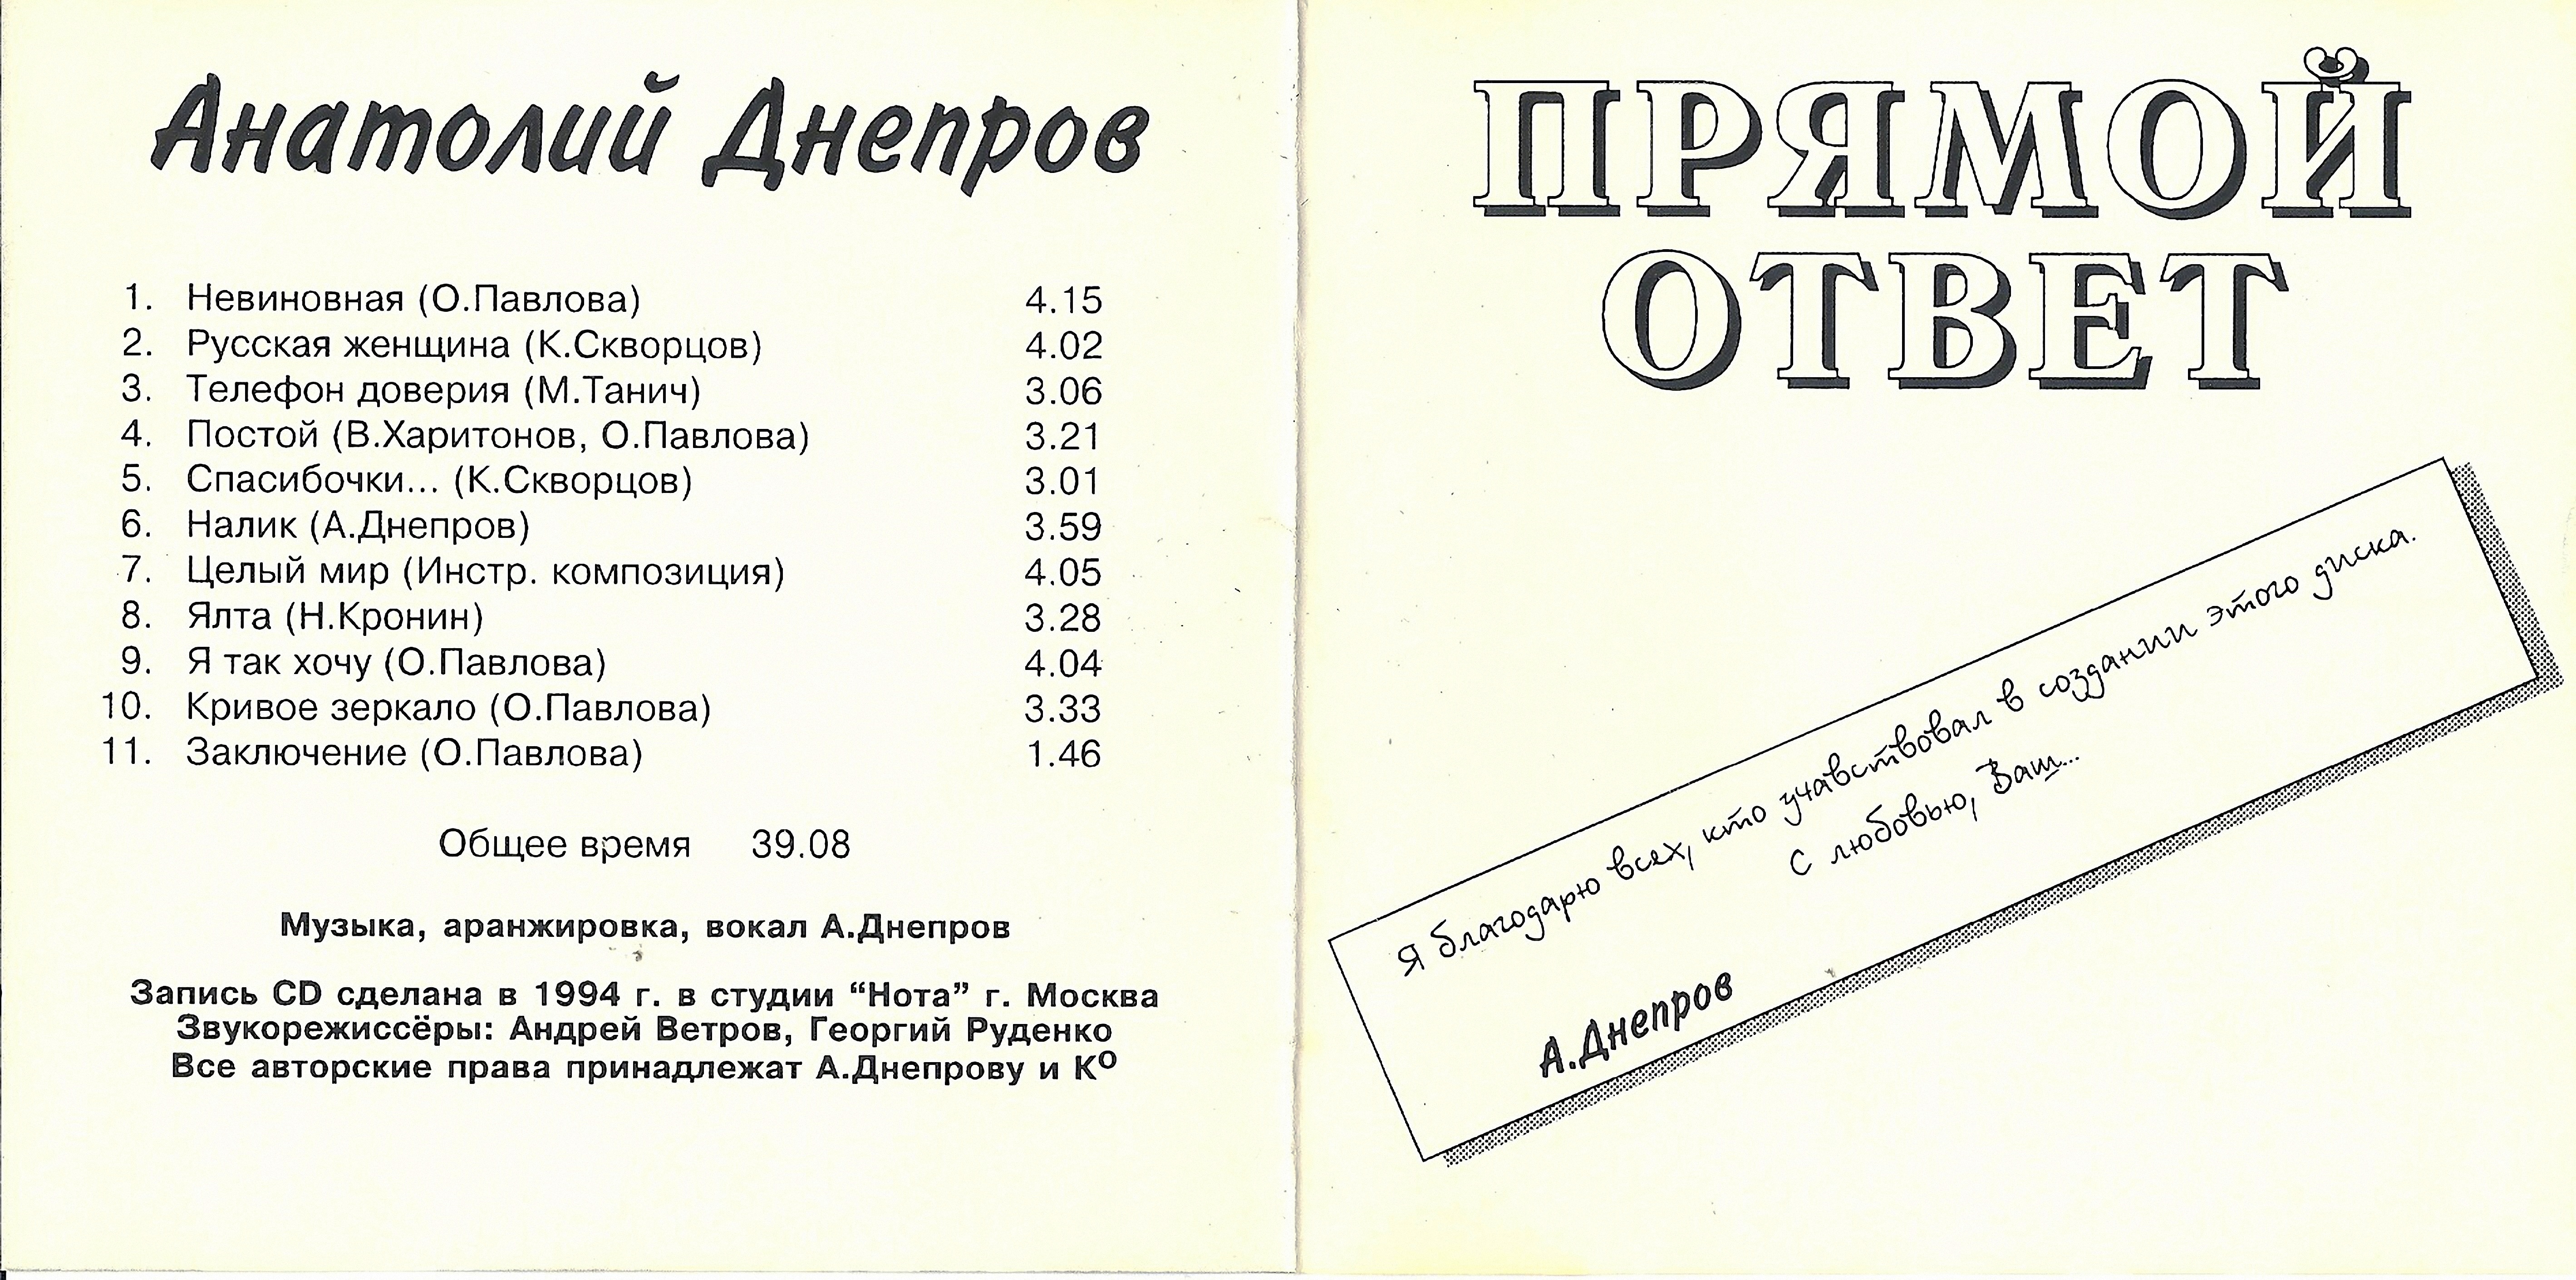 Анатолий Днепров
1. Невиновная (О.Павлова) 4.15
2. Русская женщина (К.Скворцов) 4.02
3. Телефон доверия (М.Танич) 3.06
4. Постой (В.Харитонов, О.Павлова) 3.21
5. Спасибочки... (К.Скворцов) 3.01
6. Налик (А.Днепров) 3.59
7. Целый мир (Инстр. композиция) 4.05
8. Ялта (Н.Кронин) 3.28
9. Я так хочу (О.Павлова) 4.04
10. Кривое зеркало (О.Павлова) 3.33
11. Заключение (О.Павлова) 1.46
Общее время 39.08
Музыка, аранжировка, вокал А.Днепров
Запись CD сделана в 1994 г. в студии “Нота” г. Москва
Звукорежиссёры: Андрей Ветров, Георгий Руденко
Все авторские права принадлежат А.Днепрову и Кº
ПРЯМОЙ
ОТВЕТ
Я благодарю всех, кто учавствовал в создании этого диска.
С любовью, Ваш...
А.Днепров